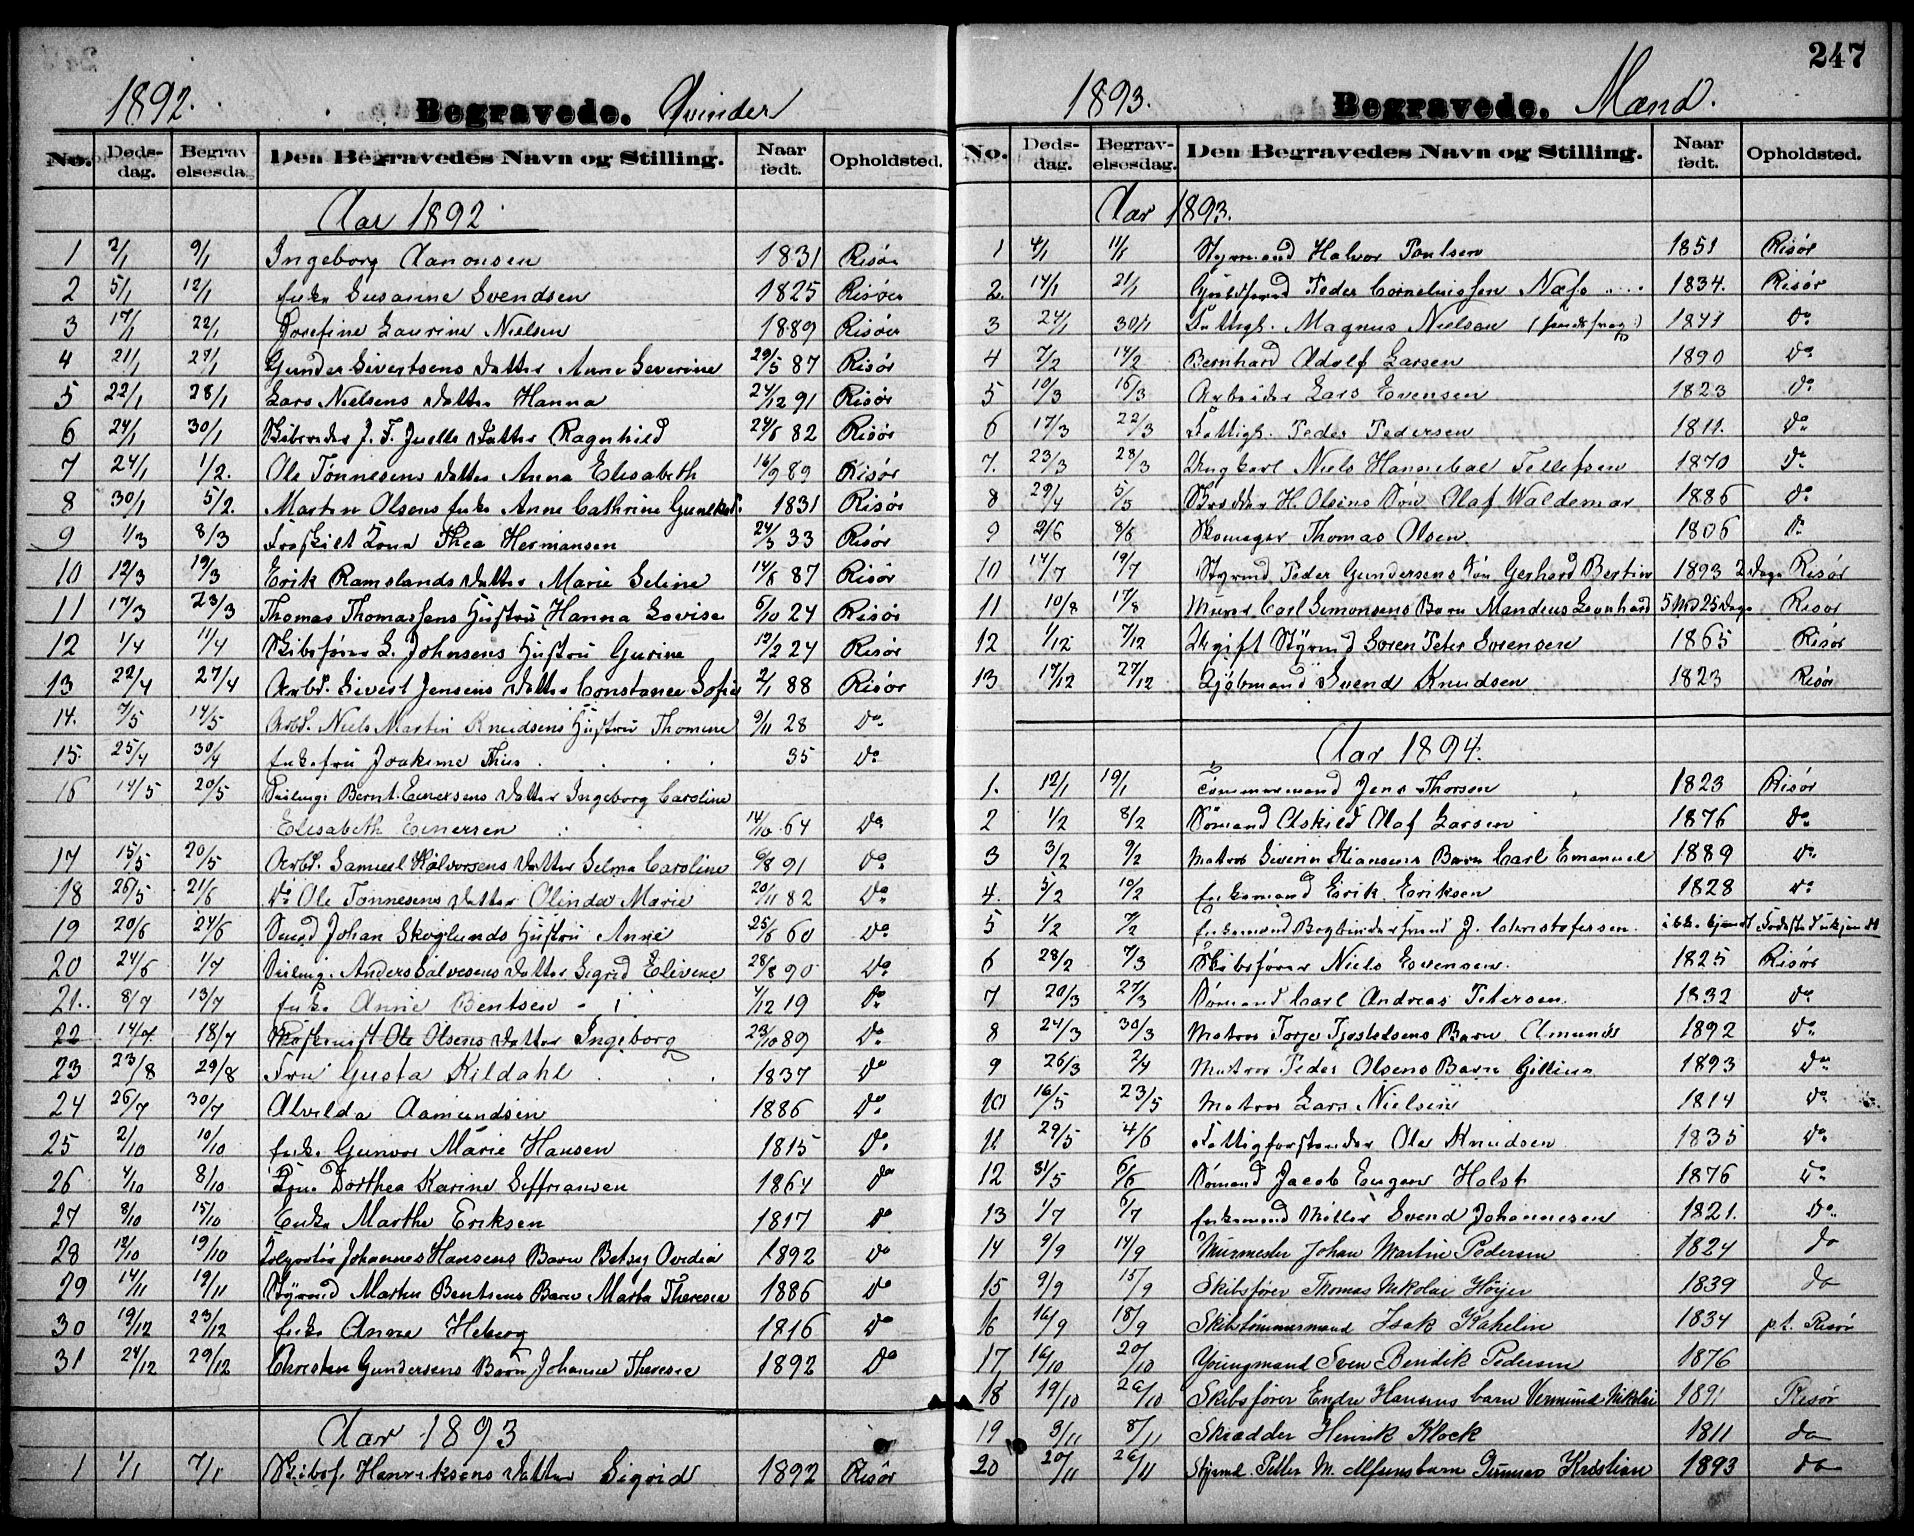 1892. Begravede. Qvinder
No. Døds-dag. Begrav elsesda Den Begravedes Navn og Stilling. Naar født. Opholdsted.
Aar 1892
1 2/1 9/1 Ingeborg Aanonsen 1831 Risør
2 5/1 12/1 Enke Susanne Svendsen 1825 Risøer
3 17/1 22/1 Josefine Laurine Nielsen 1889 Risøer
4 21/1 27/1 Gunder Sivertsens Datter Anne Severine 29/5 87 Risør
5 22/1 28/1 Lars Nielsens Datter Hanna 24/12 91 Risør
6 24/1 30/1 Skibsreder J. F. Juells Datter Ragnhild 24/6 82 Risør
7 24/1 1/2. Ole Tønnesens Datter Anna Elisabeth 16/9 89 Risør
8 30/1 5/2. Martin Olsens Enke Anne Cathrine 1831 Risør
9 1/3 8/3 Fraskilt Kone Thea Hermansen 24/3 33 Risør
10 12/3 19/3 Erik Ramslands Datter Marie Seline 14/8 87 Risør
11 17/3 23/3 Thomas Thomassens Hustru Hanna Lovise 6/10 24 Risør
12 1/4 11/4 Skibsfører S. Johnsens Hustru Gurine 12/2 24 Risør
13 22/4 27/4 Arbd. Sivert Jensens Datter Constance Sofie 2/1 88 Risør
14. 7/5 14/5 Arbd. Niels Martin Knudsens Hustru Thomine 9/11 28 Do
15. 25/4 30/4 Enkefru Joakime Thiis 35 Do
16 14/5 20/5 Bernt Einersens Datter Ingeborg Caroline
Elisabeth Einersen 14/10 64 Do
17 15/5 20/5 Arbd. Samuel Halvorsens Datter Selma Caroline 6/8 91 Do
18 26/5 21/6 Do Ole Tønnesens Datter Olinda Marie 20/11 82 Do
19 20/6 24/6 Smed Johan Skoglunds Hustru Anne 25/6 60 Do
20 24/6 1/7 Anders Salvesens Datter Sigrid Elivine 28/8 90 Do
21. 8/7 13/7 Enke Anne Bentsen 4/12 19 Do
22 14/7. 18/7 Ole Olsens Datter Ingeborg 23/10 89 Do
23 23/8 29/8 Fru Gusta Kildahl 1837 Do
24 26/7 30/7 Alvilda Aamundsen 1886 Do
25 2/10 10/10 Enke Gunvor Marie Hansen 1815 Do
26 4/10 8/10 Dorthea Karine 1864 Do
27 8/10 15/10 Enke Marthe Eriksen 1817 Do
28 12/10 19/10 Johannes Hansens Barn Betsy Ovidia 1892 Do
29 14/11 19/11 Styrmd Martin Bentsens Barn Marta Theresie 1886 Do
30 19/12 23/12 Enke Anne Heberg 1816 Do
31 24/12 29/12 Christen Gundersens Barn Johanne Theresie 1892 Do
Aar 1893
1 1/1 7/1 Skibsf. Henriksens Datter Sigrid 1892 Risør
247
1893. Begravede. Mænd.
No. Døds-dag. Begrav-elsesdag. Den Begravedes Navn og Stilling. Naar født. Opholdsted.
Aar 1893.
1 4/1 11/1 Styrmand Halvor Paulsen 1851 Risør
2. 14/1 21/1 Peder Corneliussen Næss .... 1834. Risør
3 24/1 30/1 Fattigl. Magnus Nielsen 1841 Do
4 7/2 14/2 Bernhard Adolf Larsen 1890 Do
5 10/3 16/3 Arbeider Lars Evensen 1823 Do
6 17/3 22/3 Fattigl. Peder Pedersen 1811. Do
7. 23/3 28/3 Ungkarl Niels Hannibal Tellefsen 1870 Do
8 29/4 5/5 Skrædder H. Olsens Søn Olaf Waldemar 1886 Do
9 2/6 8/6 Skomager Thomas Olsen 1806 Do
10 14/7 19/7 Styrmd Peder Gundersens Søn Gerhard Bertin 1893 2 Dage Risør
11 10/8 17/8 Murer Carl Simonsens Barn Mandius Leonhard 5 Md 25 Dage Risør
12 1/12 7/12 Ugift Styrmd Søren Peter Sørensen 1865 Risør
13 17/12 27/12 Kjøbmand Svend Knudsen 1823 Risør
Aar 1894.
1. 12/1 19/1 Tømmermand Jens Thorsen 1823 Risør
2 1/2 8/2 Sømand Askild Olaf Larsen 1876 Do
3 3/2 9/2 Matros Severin Stiansens Barn Carl Emanuel 1889 Do
4. 5/2 10/2 Enkemand Eerik Eeriksen 1828 Do
5 1/2 7/2 Enkemand Bogbindersvend J. Christofersen. ikke kjendt Fødested ukjendt
6 28/2 7/3 Skibsfører Niels Evensen. 1825 Risør
7 20/3 27/3 Sømand Carl Andreas Petersen 1832 Do
8 24/3 30/3 Matros Torje Tjostelsens Barn Amund 1892 Do
9 26/3 2/4 Matros Peder Olsens Barn 1893 Do
10 16/5 23/5 Matros Lars Nielsen 1814 Do
11 29/5 4/6 Fattigforstander Ole Knudsen 1835 Do
12 31/5 6/6 Sømand Jacob Eugen Holst 1876 Do
13 1/7 6/7 Enkemand Møller Svend Johannesen 1821. Do
14 9/9 14/9 Murmester Johan Martin Pedersen 1824 do
15 9/9 15/9 Skibsfører Thomas Nikolai Høyer 1839 do
16 16/9 18/9 Skibstømmermand Isak Kahelin 1834 pt. Risør
17 16/10 20/10 Youngmand Sven Bendik Pedersen 1876
18 19/10 26/10 Skibsfører Endre Hansens barn Vermund Nikolai 1891 Risør
19 3/11 8/11 Skrædder Henrik Klock 1811 do
20 20/11 26/11 Styrmd. Petter M. Alfsens barn Gunnar Kristian 1893 do